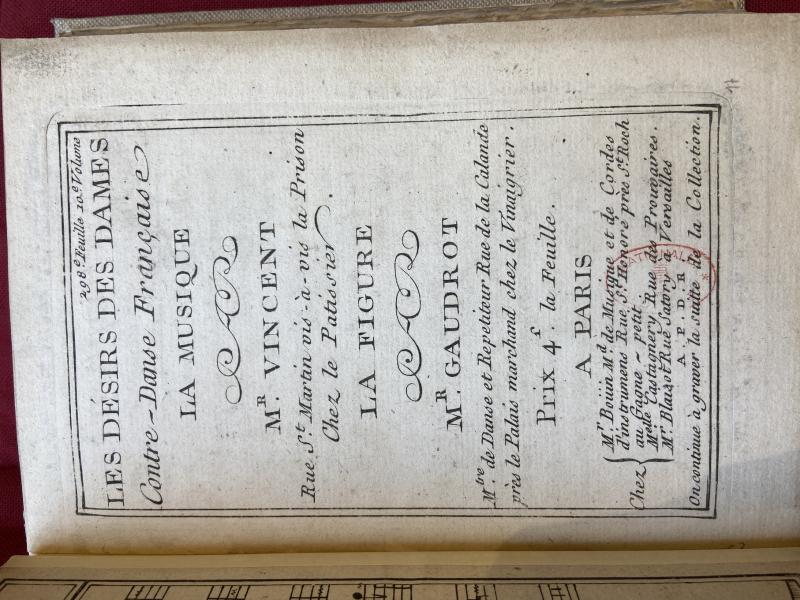 298e Feuille 10.e Volume
LES DÉSIRS DES DAMES
Contre-Danse Française
LA MUSIQUE
MR. VINCENT
Rue St. Martin vis-à-vis la Prison
Chez le Patissier.
LA FIGURE
MR. GAUDROT
Mtre. de Danse et Repetiteur Rue de la Calande
près le Palais marchand chez le Vinaigrier.
Prix 4f. la Feuille.
A PARIS
Chez
Mr. Boüin Md. de Musique et de Cordes
d'instrumens Rue St. Honoré près St. Roch
au Gagne-petit
Melle Castagnery Rue des Prouvaires.
Mr. Blaizot Rue Satory à Versailles
A. P. D. R
On continue à graver la suitte de la Collection.
17